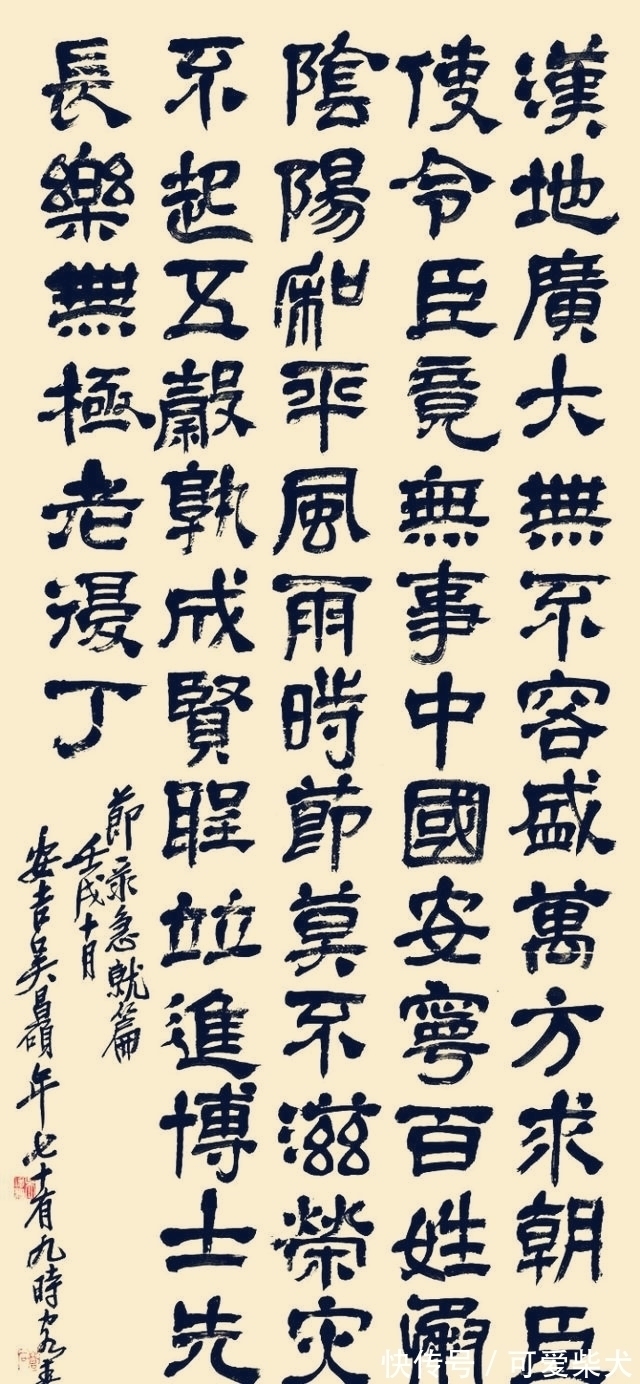 漢地廣大無不容盛萬方來朝臣
使令臣竟無事中國安寧百姓
陰陽和平風雨時節莫不滋榮灾
不起五穀孰成賢聖竝進博士先
長樂無極老復丁
節录急就篇
壬戌十月
安吉吳昌碩年七十有九時客
快传号 / 可爱柴犬